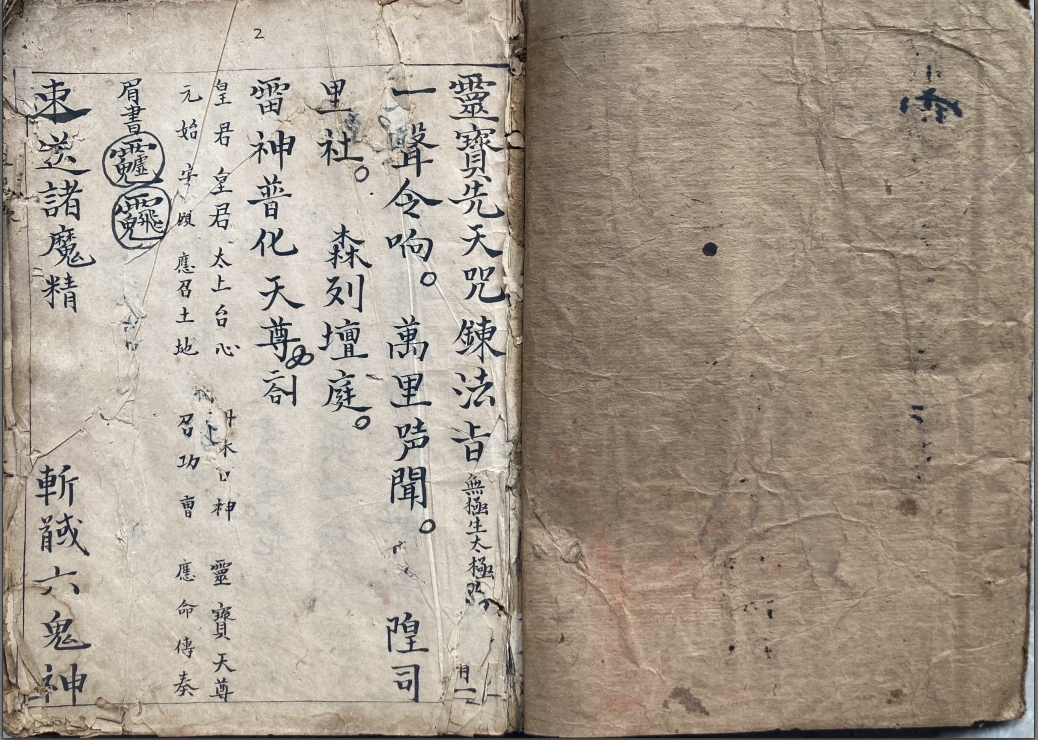 2
靈寶先天咒 鍊法旨 無極生太極
一聲令响。 萬里哼聞。 隍司
里社。 森列壇庭。
雷神普化天尊
皇君 皇君 太上台心 神 靈寶天尊
元始安 應召土地 召功曹 應命傳奏
眉書
束送諸魔精 斬馘六鬼神